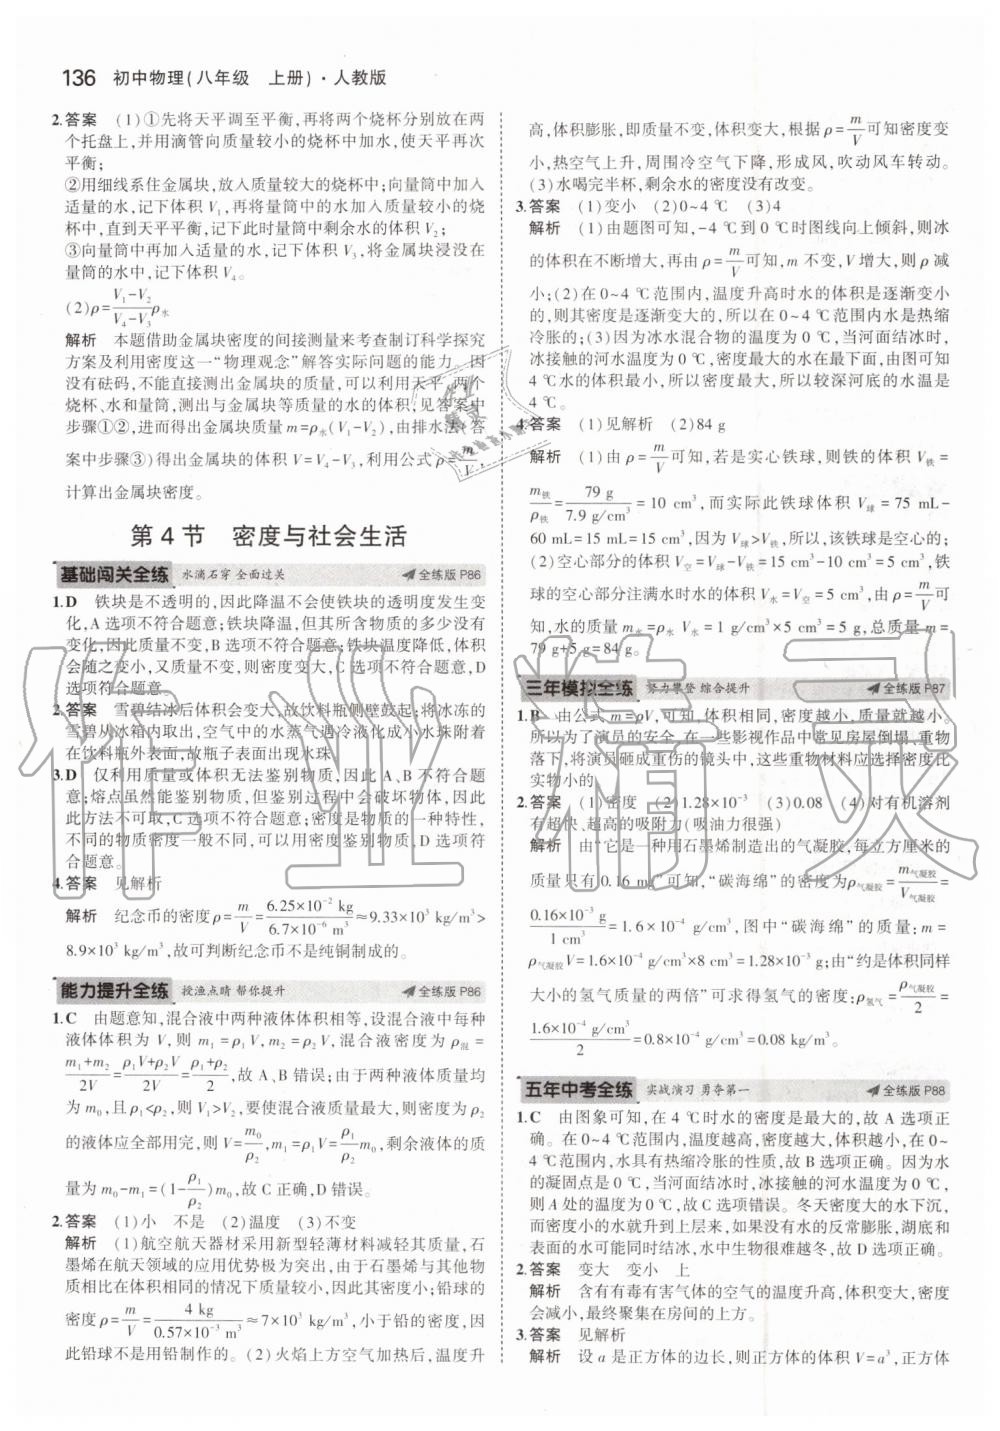 136 初中物理(八年级 上册)·人教版
2.答案 (1)①先将天平调至平衡,再将两个烧杯分别放在两
个托盘上,并用滴管向质量较小的烧杯中加水,使天平再次
平衡;
②用细线系住金属块,放入质量较大的烧杯中;向量筒中加入
适量的水,记下体积 V₁,再将量筒中的水加入质量较小的烧
杯中,直到天平平衡,记下此时量筒中剩余水的体积 V₂;
③向量筒中再加入适量的水,记下体积 V₃,将金属块浸没在
量筒的水中,记下体积 V₄。
(2)ρ=(V₁-V₂)/(V₄-V₃)ρ水
解析 本题借助金属块密度的间接测量来考查制订科学探究
方案及利用密度这一“物理观念”解答实际问题的能力。因
没有砝码,不能直接测出金属块的质量,可以利用天平、两个
烧杯、水和量筒,测出与金属块等质量的水的体积,见答案中
步骤①②,进而得出金属块质量 m=ρ水(V₁-V₂),由排水法(答
案中步骤③)得出金属块的体积 V=V₄-V₃,利用公式 ρ=m/V,
计算出金属块密度。
第4节 密度与社会生活
基础闯关全练 水滴石穿 全面过关 全练版 P86
1.D 铁块是不透明的,因此降温不会使铁块的透明度发生变
化,A 选项不符合题意;铁块降温,但其所含物质的多少没有
变化,因此质量不变,B 选项不符合题意;铁块温度降低,体积
会随之变小,又质量不变,则密度变大,C 选项不符合题意,D
选项符合题意。
2.答案 雪碧结冰后体积会变大,故饮料瓶侧壁鼓起;将冰冻的
雪碧从冰箱内取出,空气中的水蒸气遇冷液化成小水珠附着
在饮料瓶外表面,故瓶子表面出现水珠。
3.D 仅利用质量或体积无法鉴别物质,因此 A、B 不符合题
意;熔点虽然能鉴别物质,但鉴别过程中会破坏物体,因此
此方法不可取,C 选项不符合题意;密度是物质的一种特性,
不同的物质密度一般不同,可以用密度鉴别物质,D 选项符
合题意。
4.答案 见解析
解析 纪念币的密度 ρ=m/V=(6.25×10⁻² kg)/(6.7×10⁻⁶ m³)≈9.33×10³ kg/m³>
8.9×10³ kg/m³,故可判断纪念币不是纯铜制成的。
能力提升全练 授渔点睛 帮你提升 全练版 P86
1.C 由题意知,混合液中两种液体体积相等,设混合液中每种
液体体积为 V,则 m₁=ρ₁V,m₂=ρ₂V,混合液密度为 ρ混=
(m₁+m₂)/2V=(ρ₁V+ρ₂V)/2V=(ρ₁+ρ₂)/2,故 A、B 错误;由于两种液体质量均
为 m₀,且 ρ₁<ρ₂,则 V₁>V₂,要使混合液质量最大,则密度 ρ₂
的液体应全部用完,则 V=m₀/ρ₂,m₁=ρ₁V=(ρ₁/ρ₂)m₀,剩余液体的质
量为 m₀-m₁=(1-ρ₁/ρ₂)m₀,故 C 正确,D 错误。
2.答案 (1)小 不是 (2)温度 (3)不变
解析 (1)航空航天器材采用新型轻薄材料减轻其质量,石
墨烯在航天领域的应用优势极为突出。由于石墨烯与其他物
质比在体积相同的情况下质量较小,因此其密度小;铅球的
密度 ρ=m/V=(4 kg)/(0.57×10⁻³ m³)≈7×10³ kg/m³,小于铅的密度,因
此铅球不是用铅制作的。(2)火焰上方空气加热后,温度升
高,体积膨胀,即质量不变,体积变大,根据 ρ=m/V可知密度变
小,热空气上升,周围冷空气下降,形成风,吹动风车转动。
(3)水喝完半杯,剩余水的密度没有改变。
3.答案 (1)变小 (2)0~4 ℃ (3)4
解析 (1)由题图可知,-4 ℃到 0 ℃时图线向上倾斜,则冰
的体积在不断增大,再由 ρ=m/V可知,m 不变,V 增大,则 ρ 减
小;(2)在 0~4 ℃范围内,温度升高时水的体积是逐渐变小
的,则其密度是逐渐变大的,所以在 0~4 ℃范围内水是热缩
冷胀的;(3)因为冰水混合物的温度为 0 ℃,当河面结冰时,
冰接触的河水温度为 0 ℃,密度最大的水在最下面,由图可知
4 ℃水的体积最小,所以密度最大,所以较深河底的水温是
4 ℃。
4.答案 (1)见解析 (2)84 g
解析 (1)由 ρ=m/V可知,若是实心铁球,则铁的体积 V铁=
m铁/ρ铁=(79 g)/(7.9 g/cm³)=10 cm³,而实际此铁球体积 V球=75 mL-
60 mL=15 mL=15 cm³,因为 V球>V铁,所以,该铁球是空心的;
(2)空心部分的体积 V空=V球-V铁=15 cm³-10 cm³=5 cm³,铁
球的空心部分注满水时水的体积 V水=V空=5 cm³,由 ρ=m/V可
知,水的质量 m水=ρ水 V水=1 g/cm³×5 cm³=5 g,总质量 m=
79 g+5 g=84 g。
三年模拟全练 努力攀登 综合提升 全练版 P87
1.B 由公式 m=ρV,可知,体积相同,密度越小,质量就越小。
所以为了演员的安全,在一些影视作品中常见房屋倒塌、重物
落下,将演员砸成重伤的镜头中,这些重物材料应选择密度比
实物小的。
2.答案 (1)密度 (2)1.28×10⁻³ (3)0.08 (4)对有机溶剂
有超快、超高的吸附力(吸油力很强)
解析 由“它是一种用石墨烯制造出的气凝胶,每立方厘米的
质量只有 0.16 mg”可知,“碳海绵”的密度为ρ气凝胶=m气凝胶/V气凝胶=
(0.16×10⁻³ g)/(1 cm³)=1.6×10⁻⁴ g/cm³,图中“碳海绵”的质量:m=
ρ气凝胶V=1.6×10⁻⁴ g/cm³×8 cm³=1.28×10⁻³ g;由“约是体积同样
大小的氢气质量的两倍”可求得氢气的密度:ρ氢气=ρ气凝胶/2=
(1.6×10⁻⁴ g/cm³)/2=0.8×10⁻⁴ g/cm³=0.08 kg/m³。
五年中考全练 实战演习 勇夺第一 全练版 P88
1.C 由图象可知,在 4 ℃时水的密度是最大的,故 A 选项正
确。在 0~4 ℃范围内,温度越高,密度越大,体积越小,在 0~
4 ℃范围内,水具有热缩冷胀的性质,故 B 选项正确。因为水
的凝固点是 0 ℃,当河面结冰时,冰接触的河水温度为 0 ℃,
则 A 处的温度为 0 ℃,故 C 选项错误。冬天密度大的水下沉,
而密度小的水就升到上层来,如果没有水的反常膨胀,湖底和
表面的水可能同时结冰,水中生物很难越冬,故 D 选项正确。
2.答案 变大 变小 上
解析 含有有毒有害气体的空气的温度升高,体积变大,密度
会减小,最终聚集在房间的上方。
3.答案 见解析
解析 设 a 是正方体的边长,则正方体的体积 V=a³,正方体
作业精灵